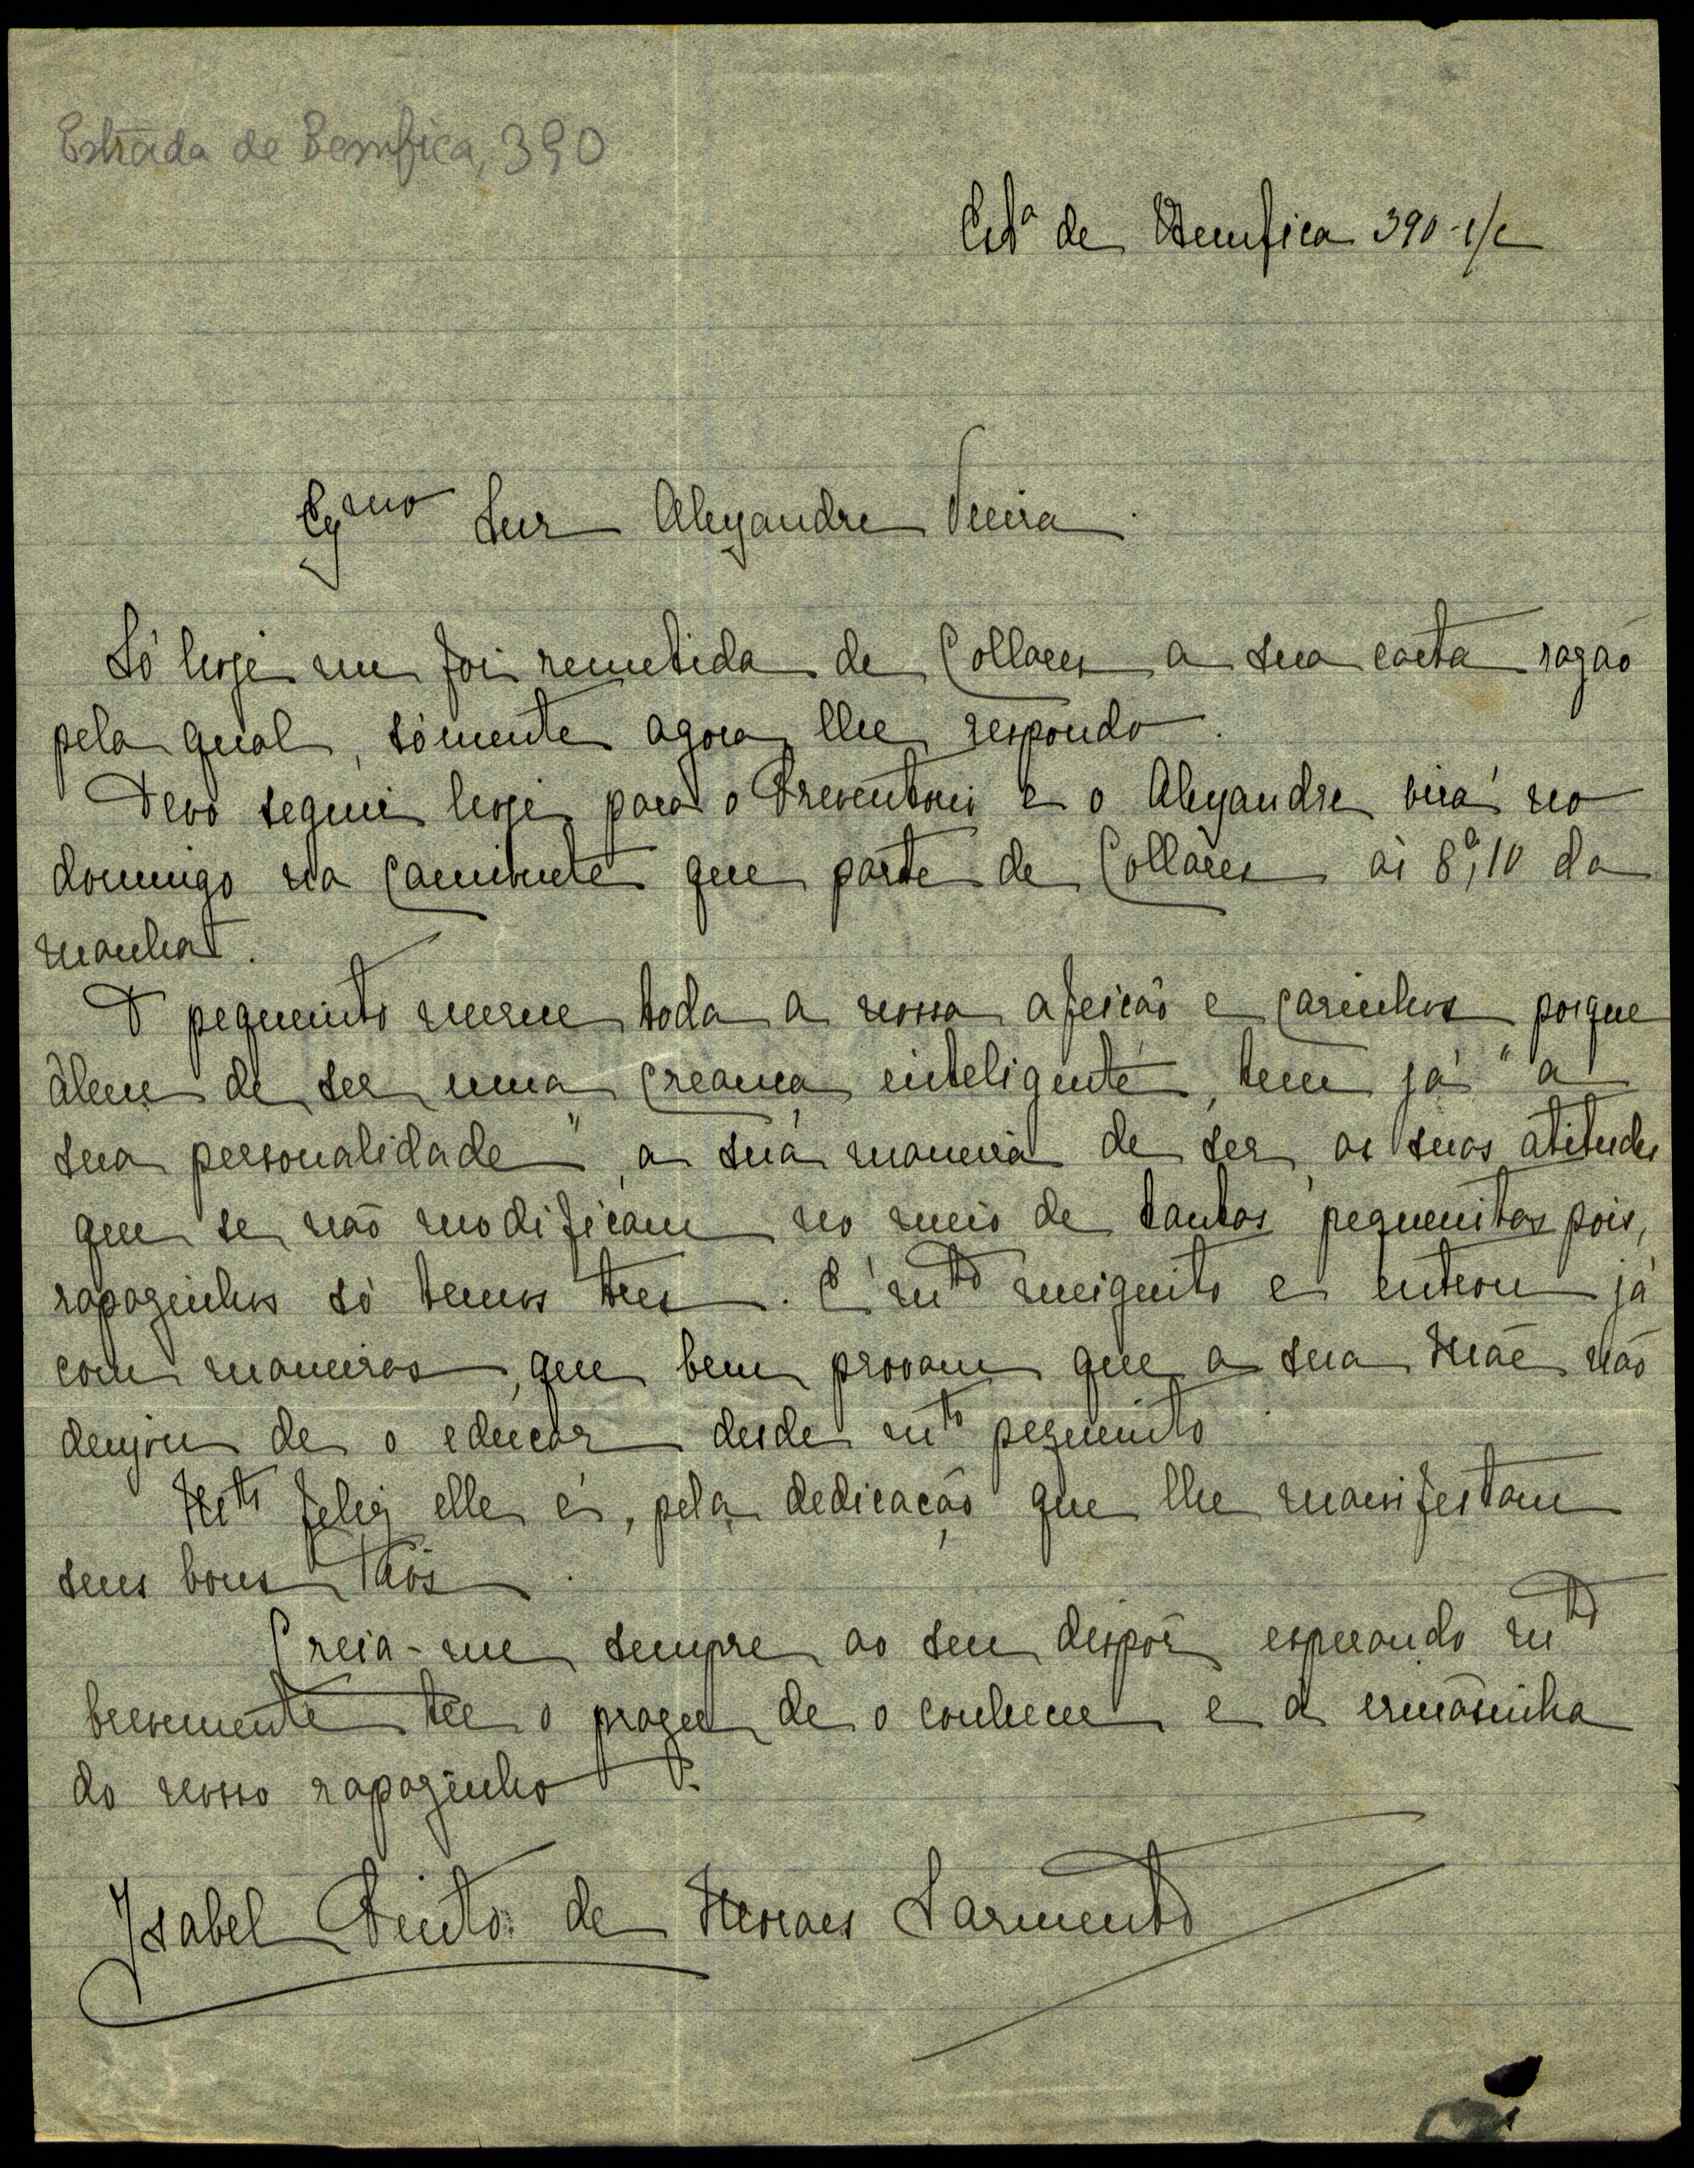 Estrada de Bemfica, 390
Estª de Bemfica 390-r/c
Exmo Snr Alexandre Vieira.
Só hoje me foi remetida de Collares a sua carta razão
pela qual, sómente agora lhe respondo.
Devo seguir hoje para o Preventorio e o Alexandre virá no
domingo na camionete que parte de Collares ás 8º,10 da
manhã.
O pequenito merece toda a nossa afeição e carinhos porque
àlem de ser uma creança inteligente, tem já "a
sua personalidade", a sua maneira de ser, as suas atitudes
que se não modificam no meio de tantas pequenitas pois,
rapazinhos só temos tres. É mto meiguito e entrou já
com maneiras, que bem provam que a sua Mãe não
deixou de o educar desde mto pequenito.
Mto feliz elle é, pela dedicação que lhe manifestam
seus bons Tios.
Creia-me sempre ao seu dispôr esperando mto
brevemente ter o prazer de o conhecer e á irmãsinha
do nosso rapazinho
Isabel Pinto de Moraes Sarmento